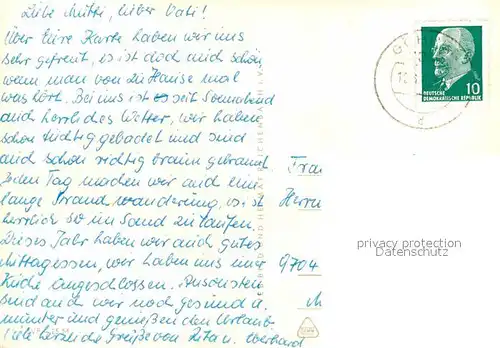 Liebe Mutti, lieber Vati!
Über Eure Karte haben wir uns
sehr gefreut, es ist doch auch schön
wenn man von zu Hause mal
was hört. Bei uns ist seit Sonnabend
auch herrliches Wetter, wir haben
schon tüchtig gebadet und sind
auch schon richtig braun gebrannt.
Jeden Tag machen wir auch eine
lange Strandwanderung, es ist
herrlich so im Sand zu laufen.
Dieses Jahr haben wir auch gutes
Mittagessen, wir haben uns einer
Küche angeschlossen. Ansonsten
sind auch wir noch gesund u.
munter und genießen den Urlaub.
Viele herzliche Grüße von Rita u. Eberhard
DEUTSCHE
DEMOKRATISCHE REPUBLIK
10
d
Herrn
9704
privacy protection
Datenschutz